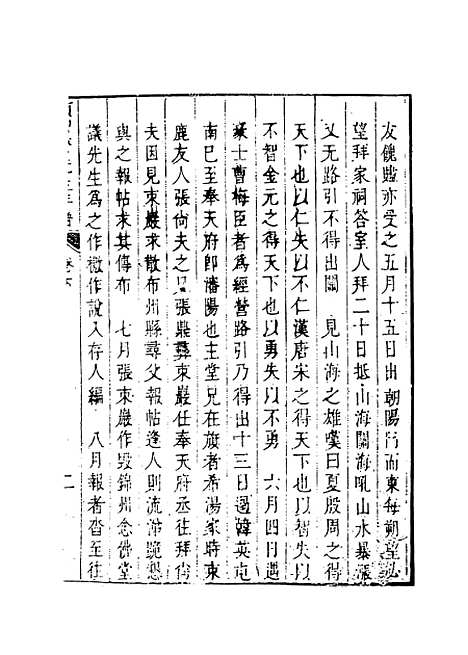 友餽贐亦受之五月十五日出朝陽行而東每朔望必
望拜家祠答室人拜二十日抵山海關海吼山水暴漲
又无路引不得出關　見山海之雄嘆曰夏殷周之得
天下也以仁失以不仁漢唐宋之得天下也以智失以
不智金元之得天下也以勇失以不勇　六月四日遇
豪士曹梅臣者為經營路引乃得出十三日過韓英屯
南巳至奉天府即瀋陽也主堂兄在旗者希湯家時東
鹿友人張尙夫之兄張鼎彝束巖任奉天府丞往拜尙
夫因見束巖求散布州縣尋父報帖逢人則流涕跪懇
與之報帖求其傳布　七月張束巖作毀錦州念佛堂
議先生為之作檄作說入存人編　八月報者沓至往
先生年譜
卷下
二